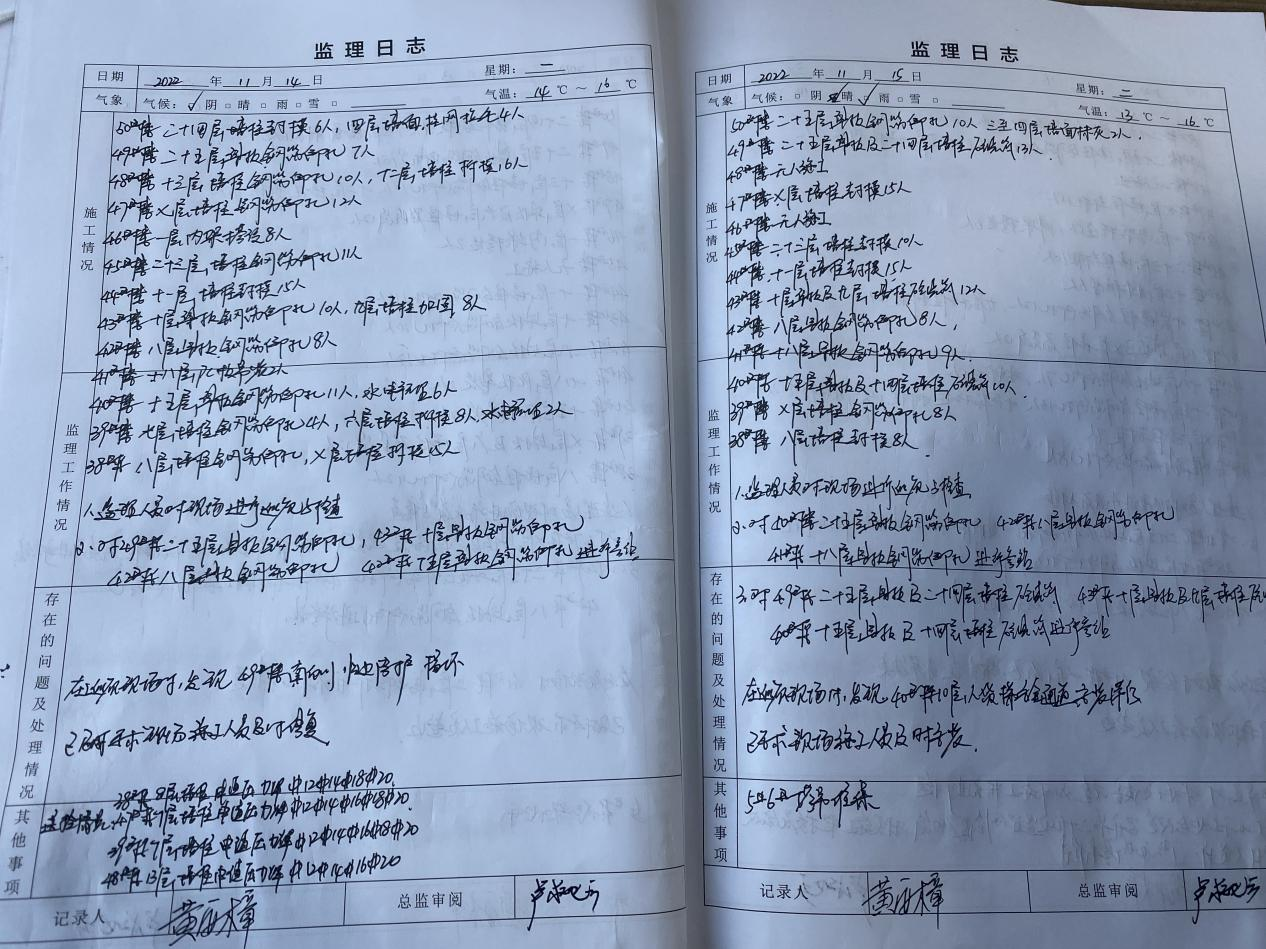 监理日志
日期 2022 年 11 月 14 日 星期: 二
气象 气候: √ 阴 □ 晴 □ 雨 □ 雪 □ 气温: 14 ℃ ~ 16 ℃
施工情况
50#楼 二十四层墙柱封模6人, 四层墙面挂网拉毛4人
49#楼 二十五层单板钢筋绑扎 7人
48#楼 十三层墙柱钢筋绑扎10人, 十二层墙柱拆模16人
47#楼 七层墙柱钢筋绑扎12人
46#楼 一层内架搭设8人
45#楼 二十三层墙柱钢筋绑扎11人
44#楼 十一层墙柱封模15人
43#楼 十层单板钢筋绑扎10人, 九层墙柱加固8人
42#楼 八层单板钢筋绑扎8人
41#楼 十八层 2人
监理工作情况
40#楼 十五层单板钢筋绑扎11人, 水电预埋6人
39#楼 七层墙柱钢筋绑扎4人, 六层墙柱拆模8人, 水电预埋2人
38#楼 八层墙柱钢筋绑扎, 七层墙柱拆模15人
1.监理人员对现场进行巡视与检查
2.对49#楼二十五层单板钢筋绑扎, 43#楼十层单板钢筋绑扎
42#楼八层单板钢筋绑扎 42#楼十五层单板钢筋绑扎进行旁站
存在的问题及处理情况
在巡视现场时,发现49#楼南侧 防护损坏
已要求现场施工人员及时修复
其他事项
38#楼8层墙柱电渣压力焊Φ12Φ14Φ18Φ20
送检情况: 47#楼7层墙柱电渣压力焊Φ12Φ14Φ16Φ18Φ20
39#楼7层墙柱电渣压力焊Φ12Φ14Φ16Φ18Φ20
48#楼13层墙柱电渣压力焊Φ12Φ14Φ16Φ20
记录人 黄 樟 总监审阅 卢
监理日志
日期 2022 年 11 月 15 日 星期: 二
气象 气候: □ 阴 晴 √ 雨 □ 雪 □ 气温: 13 ℃ ~ 16 ℃
施工情况
50#楼 二十五层单板钢筋绑扎10人 三至四层墙面抹灰2人.
49#楼 二十五层单板及二十四层墙柱砼浇筑13人.
48#楼 无人施工
47#楼 七层墙柱封模15人
46#楼 无人施工
45#楼 二十三层墙柱封模10人
44#楼 十一层墙柱封模15人
43#楼 十层单板及九层墙柱砼浇筑12人
42#楼 八层单板钢筋绑扎8人,
41#楼 十八层单板钢筋绑扎9人.
监理工作情况
40#楼 十五层单板及十四层墙柱砼浇筑10人.
39#楼 七层墙柱钢筋绑扎8人
38#楼 八层墙柱封模8人.
1.监理人员对现场进行巡视与检查
2.对40#楼二十五层单板钢筋绑扎, 42#楼八层单板钢筋绑扎
41#楼十八层单板钢筋绑扎进行旁站
存在的问题及处理情况
3.对49#楼二十五层单板及二十四层墙柱砼浇筑 43#楼十层单板及九层墙柱砼
40#楼十五层单板及十四层墙柱砼浇筑进行旁站
在巡视现场时,发现40#楼10层人货梯安全通道
已要求现场施工人员及时
其他事项
记录人 黄 樟 总监审阅 卢